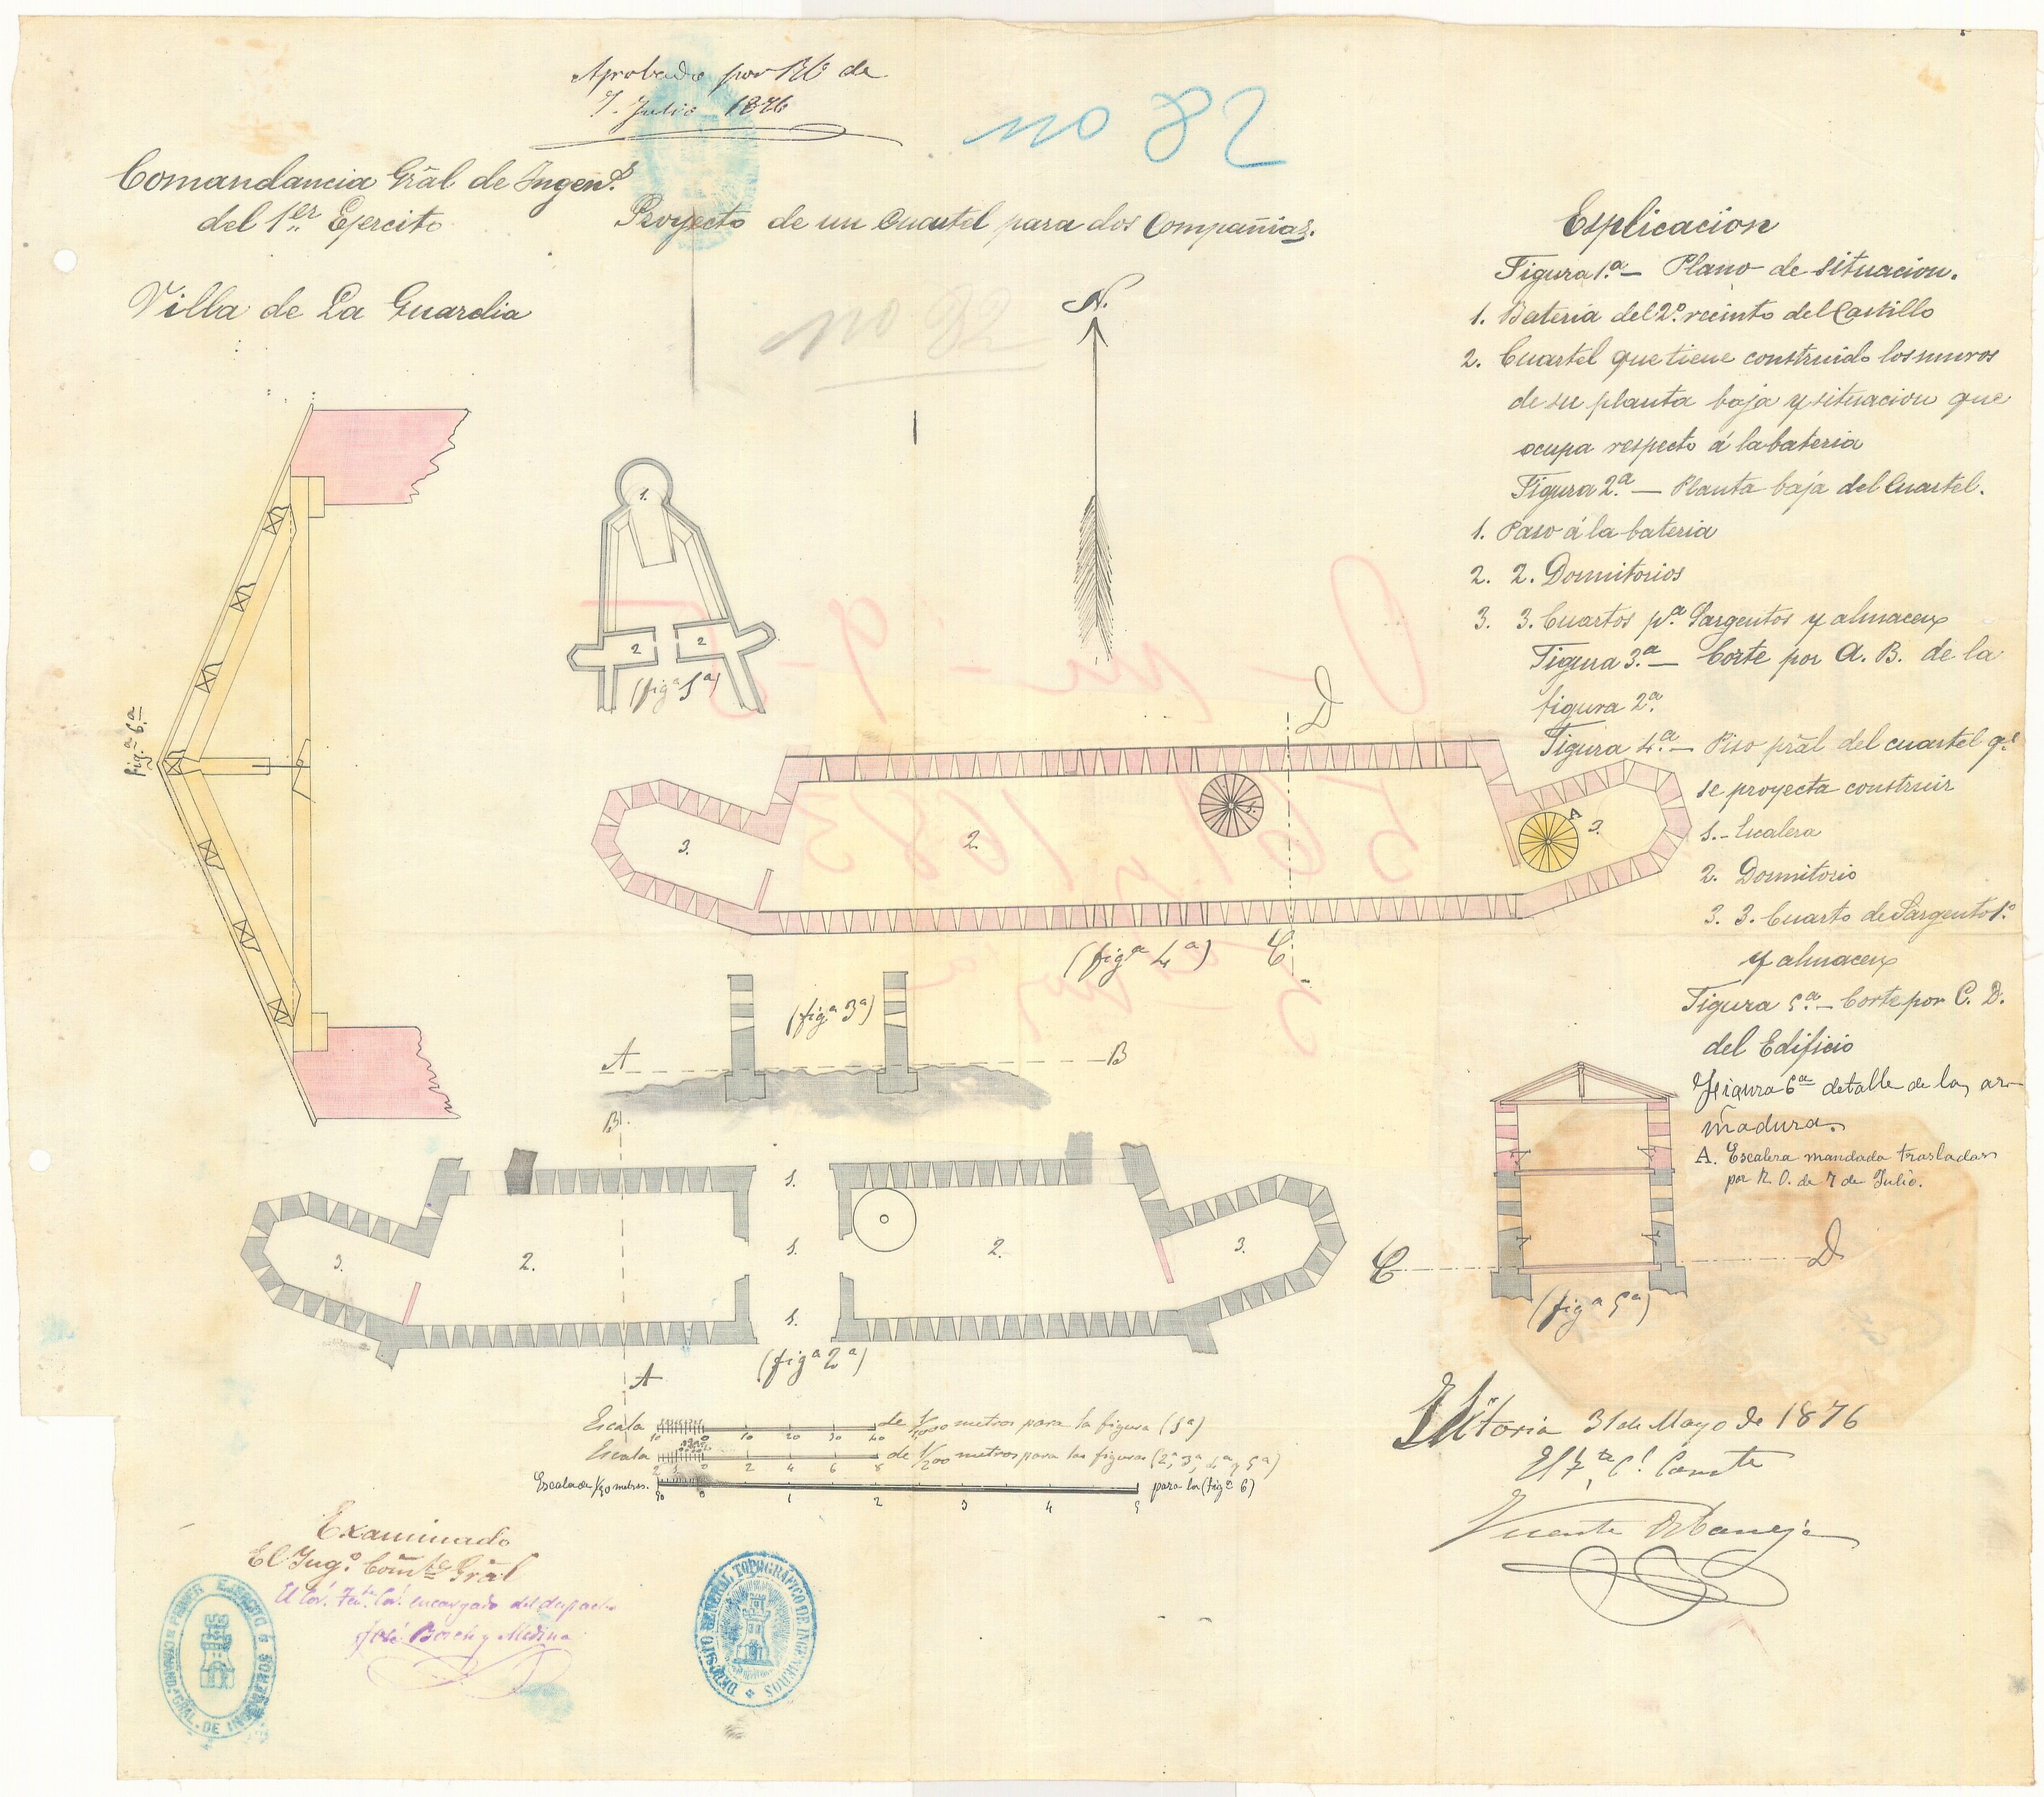 Aprobado por R.O. de
7. Julio 1876
no 82
Comandancia Gral de Ingen.s
del 1.er Ejercito
Proyecto de un Cuartel para dos Compañias.
Villa de La Guardia
no 82
N.
Esplicacion
Figura 1.a — Plano de situacion.
1. Bateria del 2.o recinto del Castillo
2. Cuartel que tiene construido los muros
de su planta baja y situacion que
ocupa respecto á la bateria
Figura 2.a — Planta baja del Cuartel.
1. Paso á la bateria
2. 2. Dormitorios
3. 3. Cuartos p.a Sargentos y almacen
Figura 3.a — Corte por A. B. de la
figura 2.a
Figura 4.a — Piso pral del cuartel q.e
se proyecta construir
1. - Escalera
2. Dormitorio
3. 3. Cuarto de Sargento 1.o
y almacen
Figura 5.a — Corte por C. D.
del Edificio
Figura 6a detalle de la ar-
madura.
A. Escalera mandada trasladar
por R. O. de 7 de Julio.
fig.a 6.a
1.
2
2
(fig.a 1a)
D
3.
2.
1.
A
3.
(fig.a 4a)
C
(fig.a 3a)
A
B
B
3.
2.
1.
1.
1.
2.
3.
(fig.a 2a)
A
C
D
(fig.a 5a)
Escala
10 0 10 20 30 40
de 1/1000 metros para la figura (1a)
Escala
2 1 0 2 4 6 8
de 1/200 metros para las figuras (2a, 3a, 4a y 5a)
Escala de 1/50 metros.
10 0 1 2 3 4 5
para la (fig.a 6)
Vitoria 31 de Mayo de 1876
El T.te C.l Com.te
Vicente Orbaneja
Examinado
El Ing.o Com.te Gral
El Cor. Ten.te Cor. encargado del despacho
José Bosch y Medina
COMAND.A GRAL. DE INGENIEROS PRIMER EJERCITO
DEPOSITO GENERAL TOPOGRAFICO DE INGENIEROS